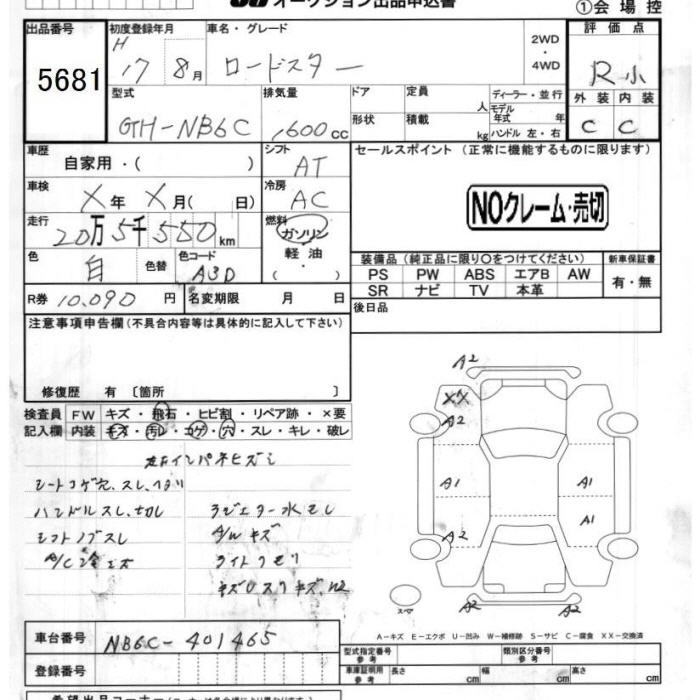 オークション出品申込書 ①会場控
出品番号 初度登録年月 車名・グレード 2WD・4WD 評価点
5681 H 17 8月 ロードスター R小
型式 排気量 ドア 定員 人 ディーラー・並行 外装 内装
GH-NB6C 1,600cc 形状 積載 kg モデル年式 年 ハンドル 左・右 C C
車歴 シフト セールスポイント (正常に機能するものに限ります)
自家用・( ) AT
車検 X年 X月( 日) 冷房 AC NOクレーム・売切
走行 20万5千550km 燃料 ガソリン・軽油・( )
色 白 色替 色コード A3D
装備品 (純正品に限り○をつけてください) 新車保証書
PS PW ABS エアB AW 有・無
SR ナビ TV 本革
R券 10,090円 名変期限 月 日 後日品
注意事項申告欄 (不具合内容等は具体的に記入して下さい)
修復歴 有 〔箇所 〕
検査員 FW キズ・飛石・ヒビ割・リペア跡・×要
記入欄 内装 キズ・汚レ・コゲ・穴・スレ・キレ・破レ
左右インパネヒズミ
シートコゲ穴、スレ、ヘタリ
ハンドルスレ、切レ ラジエター水モレ
シフトノブスレ A/Wキズ
A/C冷エズ ライトクモリ
A2
XX
A2
A1 A1
A1
A2
スマ A2 A2
A-キズ E-エクボ U-凹み W-補修跡 S-サビ C-腐食 XX-交換済
車台番号 NB6C-401465
登録番号
型式指定番号 参考 類別区分番号 参考
車庫証明用 参考 長さ cm 幅 cm 高さ cm
希望出品コーナー